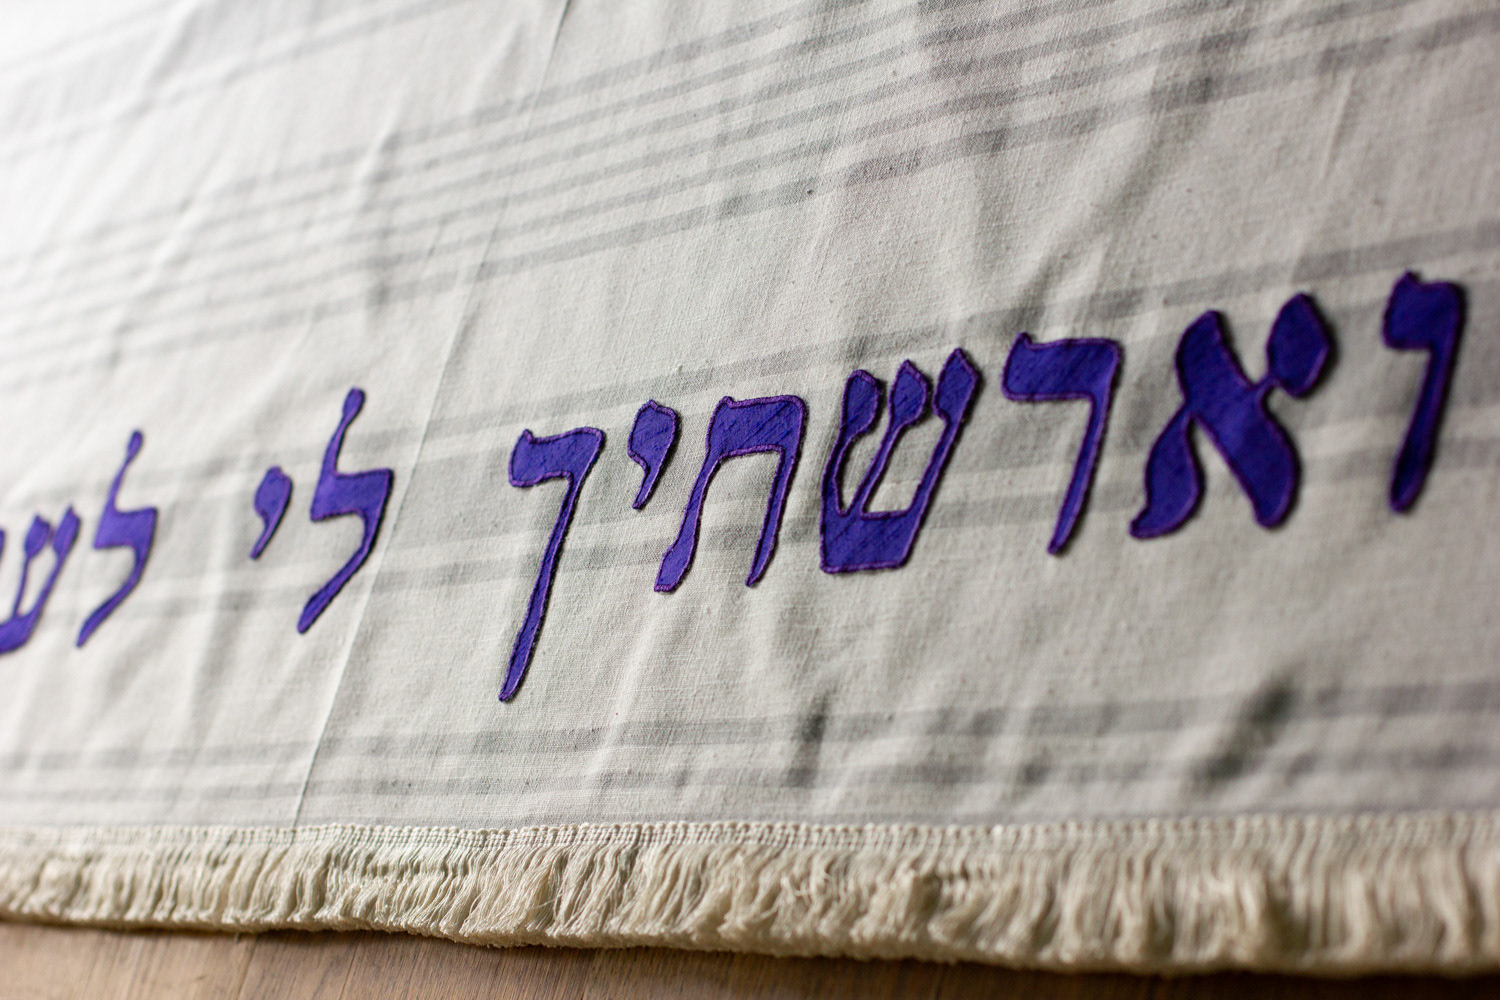 וארשתיך לי